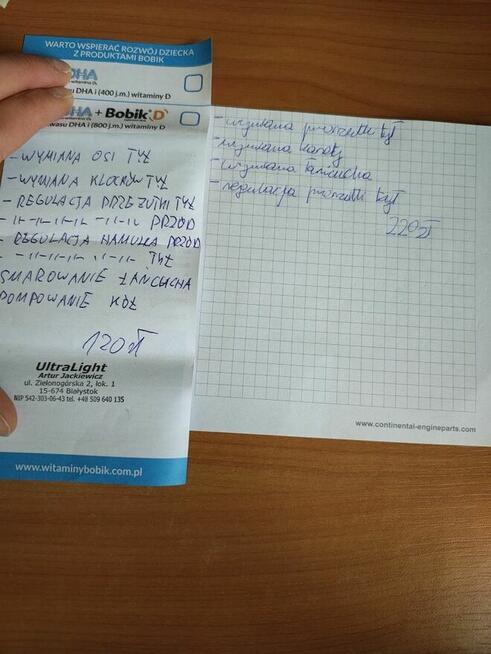 WARTO WSPIERAĆ ROZWÓJ DZIECKA
Z PRODUKTAMI BOBIK
DHA
witamina D₃
su DHA i (400 j.m.) witaminy D
DHA + Bobik D
witamina D₃
wasu DHA i (800 j.m.) witaminy D
- WYMIANA OSI TYŁ
- WYMIANA KLOCKÓW TYŁ
- REGULACJA PRZEZUTKI TYŁ
- 11-11-11-11- 11-11-11 PRZÓD
- REGULACJA HAMULCA PRZÓD
- - 11-11-11-11-11- TYŁ
SMAROWANIE ŁAŃCUCHA
POMPOWANIE KÓŁ
120 zł
UltraLight
Artur Jackiewicz
ul. Zielonogórska 2, lok. 1
15-674 Białystok
NIP 542-303-06-43 tel. +48 509 640 135
www.witaminybobik.com.pl
- wymiana przerzutki tył
- wymiana kasety
- wymiana łańcucha
- regulacja przerzutki tył
220 zł
www.continental-engineparts.com